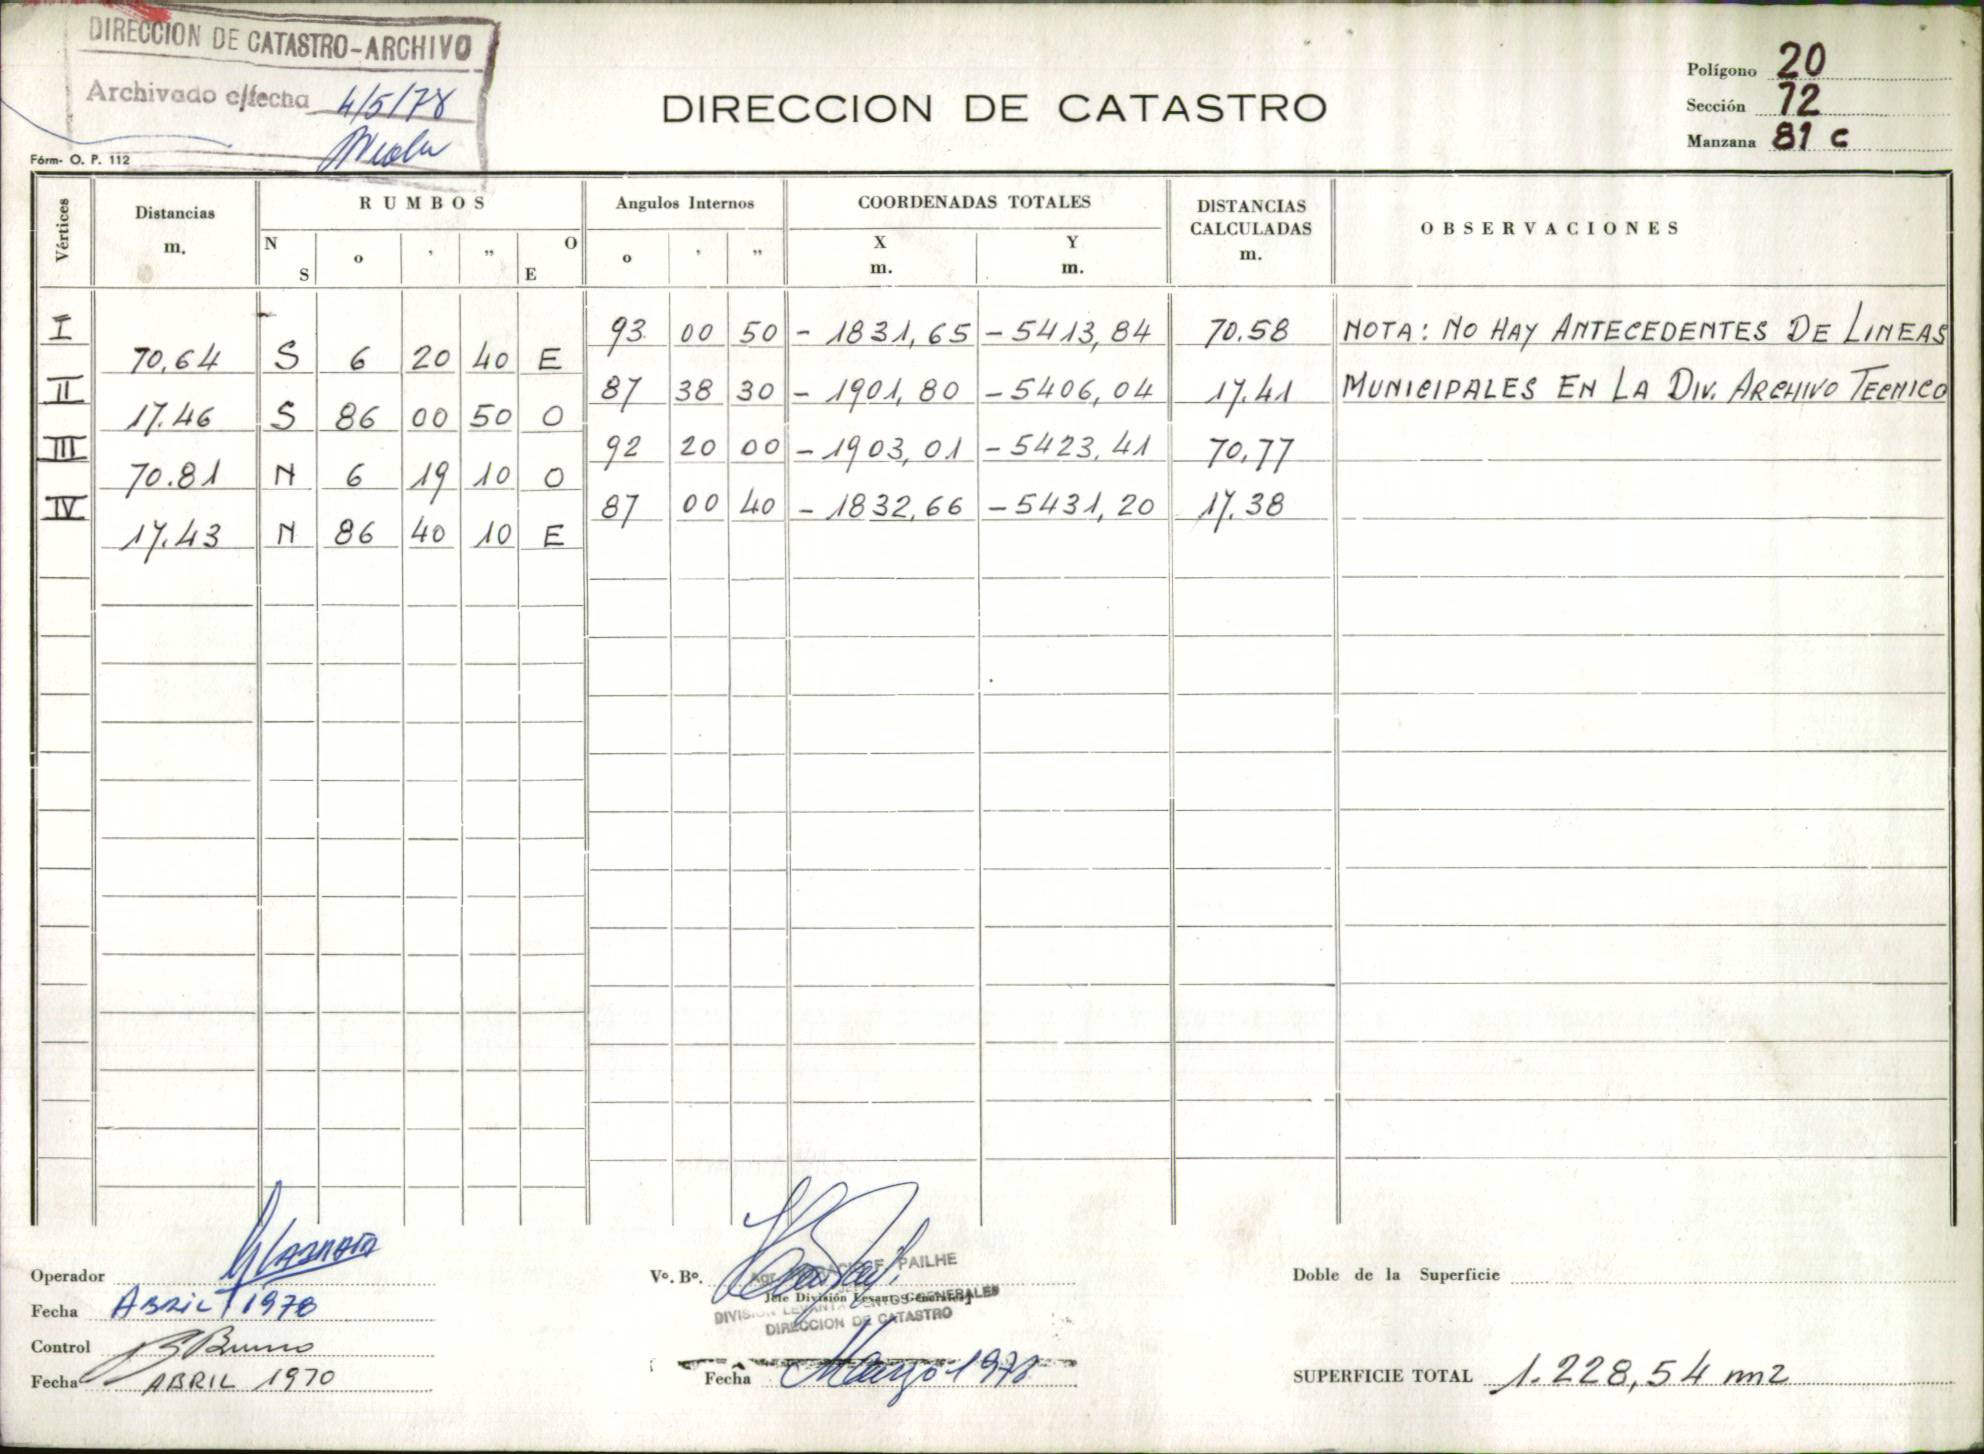 DIRECCION DE CATASTRO-ARCHIVO
Archivado c/fecha 4/5/78
Fórm- O. P. 112
DIRECCION DE CATASTRO
Polígono 20
Sección 72
Manzana 81 c
Vértices Distancias m. RUMBOS N S o ' " O E Angulos Internos o ' " COORDENADAS TOTALES X m. Y m. DISTANCIAS CALCULADAS m. OBSERVACIONES
I 93 00 50 - 1831,65 - 5413,84 70.58 NOTA: NO HAY ANTECEDENTES DE LINEAS
70,64 S 6 20 40 E
II 87 38 30 - 1901,80 - 5406,04 17.41 MUNICIPALES EN LA DIV. ARCHIVO TECNICO
17.46 S 86 00 50 O
III 92 20 00 - 1903,01 - 5423,41 70,77
70.81 N 6 19 10 O
IV 87 00 40 - 1832,66 - 5431,20 17.38
17.43 N 86 40 10 E
Operador
Fecha ABRIL 1978
Control
Fecha ABRIL 1970
Vº. Bº. PAILHE
Jefe División Levant. Generales
DIVISION LEVANTAMIENTOS GENERALES
DIRECCION DE CATASTRO
Fecha Marzo 1978
Doble de la Superficie
SUPERFICIE TOTAL 1.228,54 m2